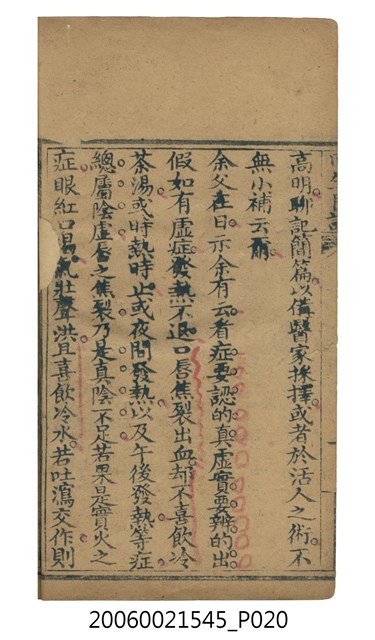 高明聊記簡篇以俻醫家採擇或者於活人之術不
無小補云爾
余父在日示余有云看症要認的真虛實要辨的出
假如有虛症發熱不退口唇焦裂出血却不喜飲冷
茶湯或時熱時止或夜間發熱以及午後發熱等症
總屬陰虛唇之焦裂乃是真陰不足若果是實火之
症眼紅口渴氣壯聲洪且喜飲冷水若吐瀉交作則
20060021545_P020